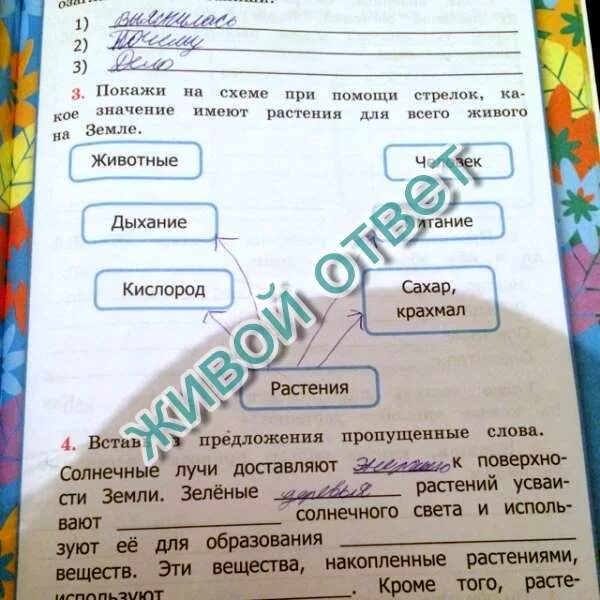 1) выяснилась
2) Почему
3) Дело
3. Покажи на схеме при помощи стрелок, ка-
кое значение имеют растения для всего живого
на Земле.
Животные
Человек
Дыхание
Питание
Кислород
Сахар,
крахмал
Растения
ЖИВОЙ ОТВЕТ
4. Вставь в предложения пропущенные слова.
Солнечные лучи доставляют энергию к поверхно-
сти Земли. Зелёные деревья растений усваи-
вают солнечного света и исполь-
зуют её для образования
веществ. Эти вещества, накопленные растениями,
используют . Кроме того, расте-